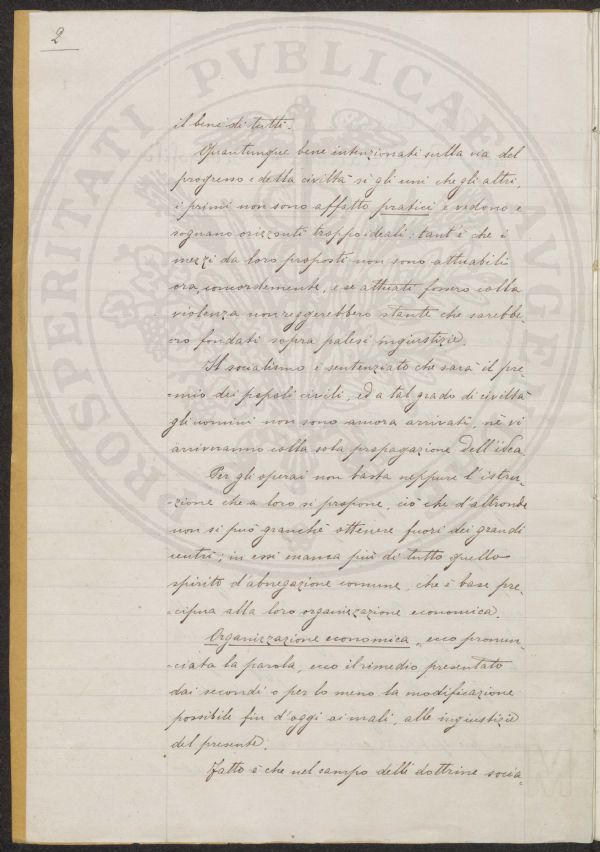 2
il bene di tutti.
Quantunque bene intenzionati sulla via del
progresso e della civiltà sì gli uni che gli altri,
i primi non sono affatto pratici e vedono e
sognano orizzonti troppo ideali: tant'è che i
mezzi da loro proposti non sono attuabili
ora concordemente, e se attuati fossero colla
violenza non reggerebbero stante che sarebbe-
ro fondati sopra palesi ingiustizie.
Il socialismo è sentenziato che sarà il pre-
-mio dei popoli civili, ed a tal grado di civiltà
gli uomini non sono ancora arrivati, nè vi
arriveranno colla sola propagazione dell'idea
Per gli operai non basta neppure l'istru-
-zione che a loro si propone, ciò che d'altronde
non si può granchè ottenere fuori dei grandi
centri; in essi manca più di tutto quello
spirito d'abnegazione comune, che è base pre-
-cipua alla loro organizzazione economica.
Organizzazione economica, ecco pronun-
-ciata la parola, ecco il rimedio presentato
dai secondi o per lo meno la modificazione
possibile fin d'oggi ai mali, alle ingiustizie
del presente.
Fatto è che nel campo delle dottrine socia-
PROSPERITATI PVBLICAE AVGENDAE
M